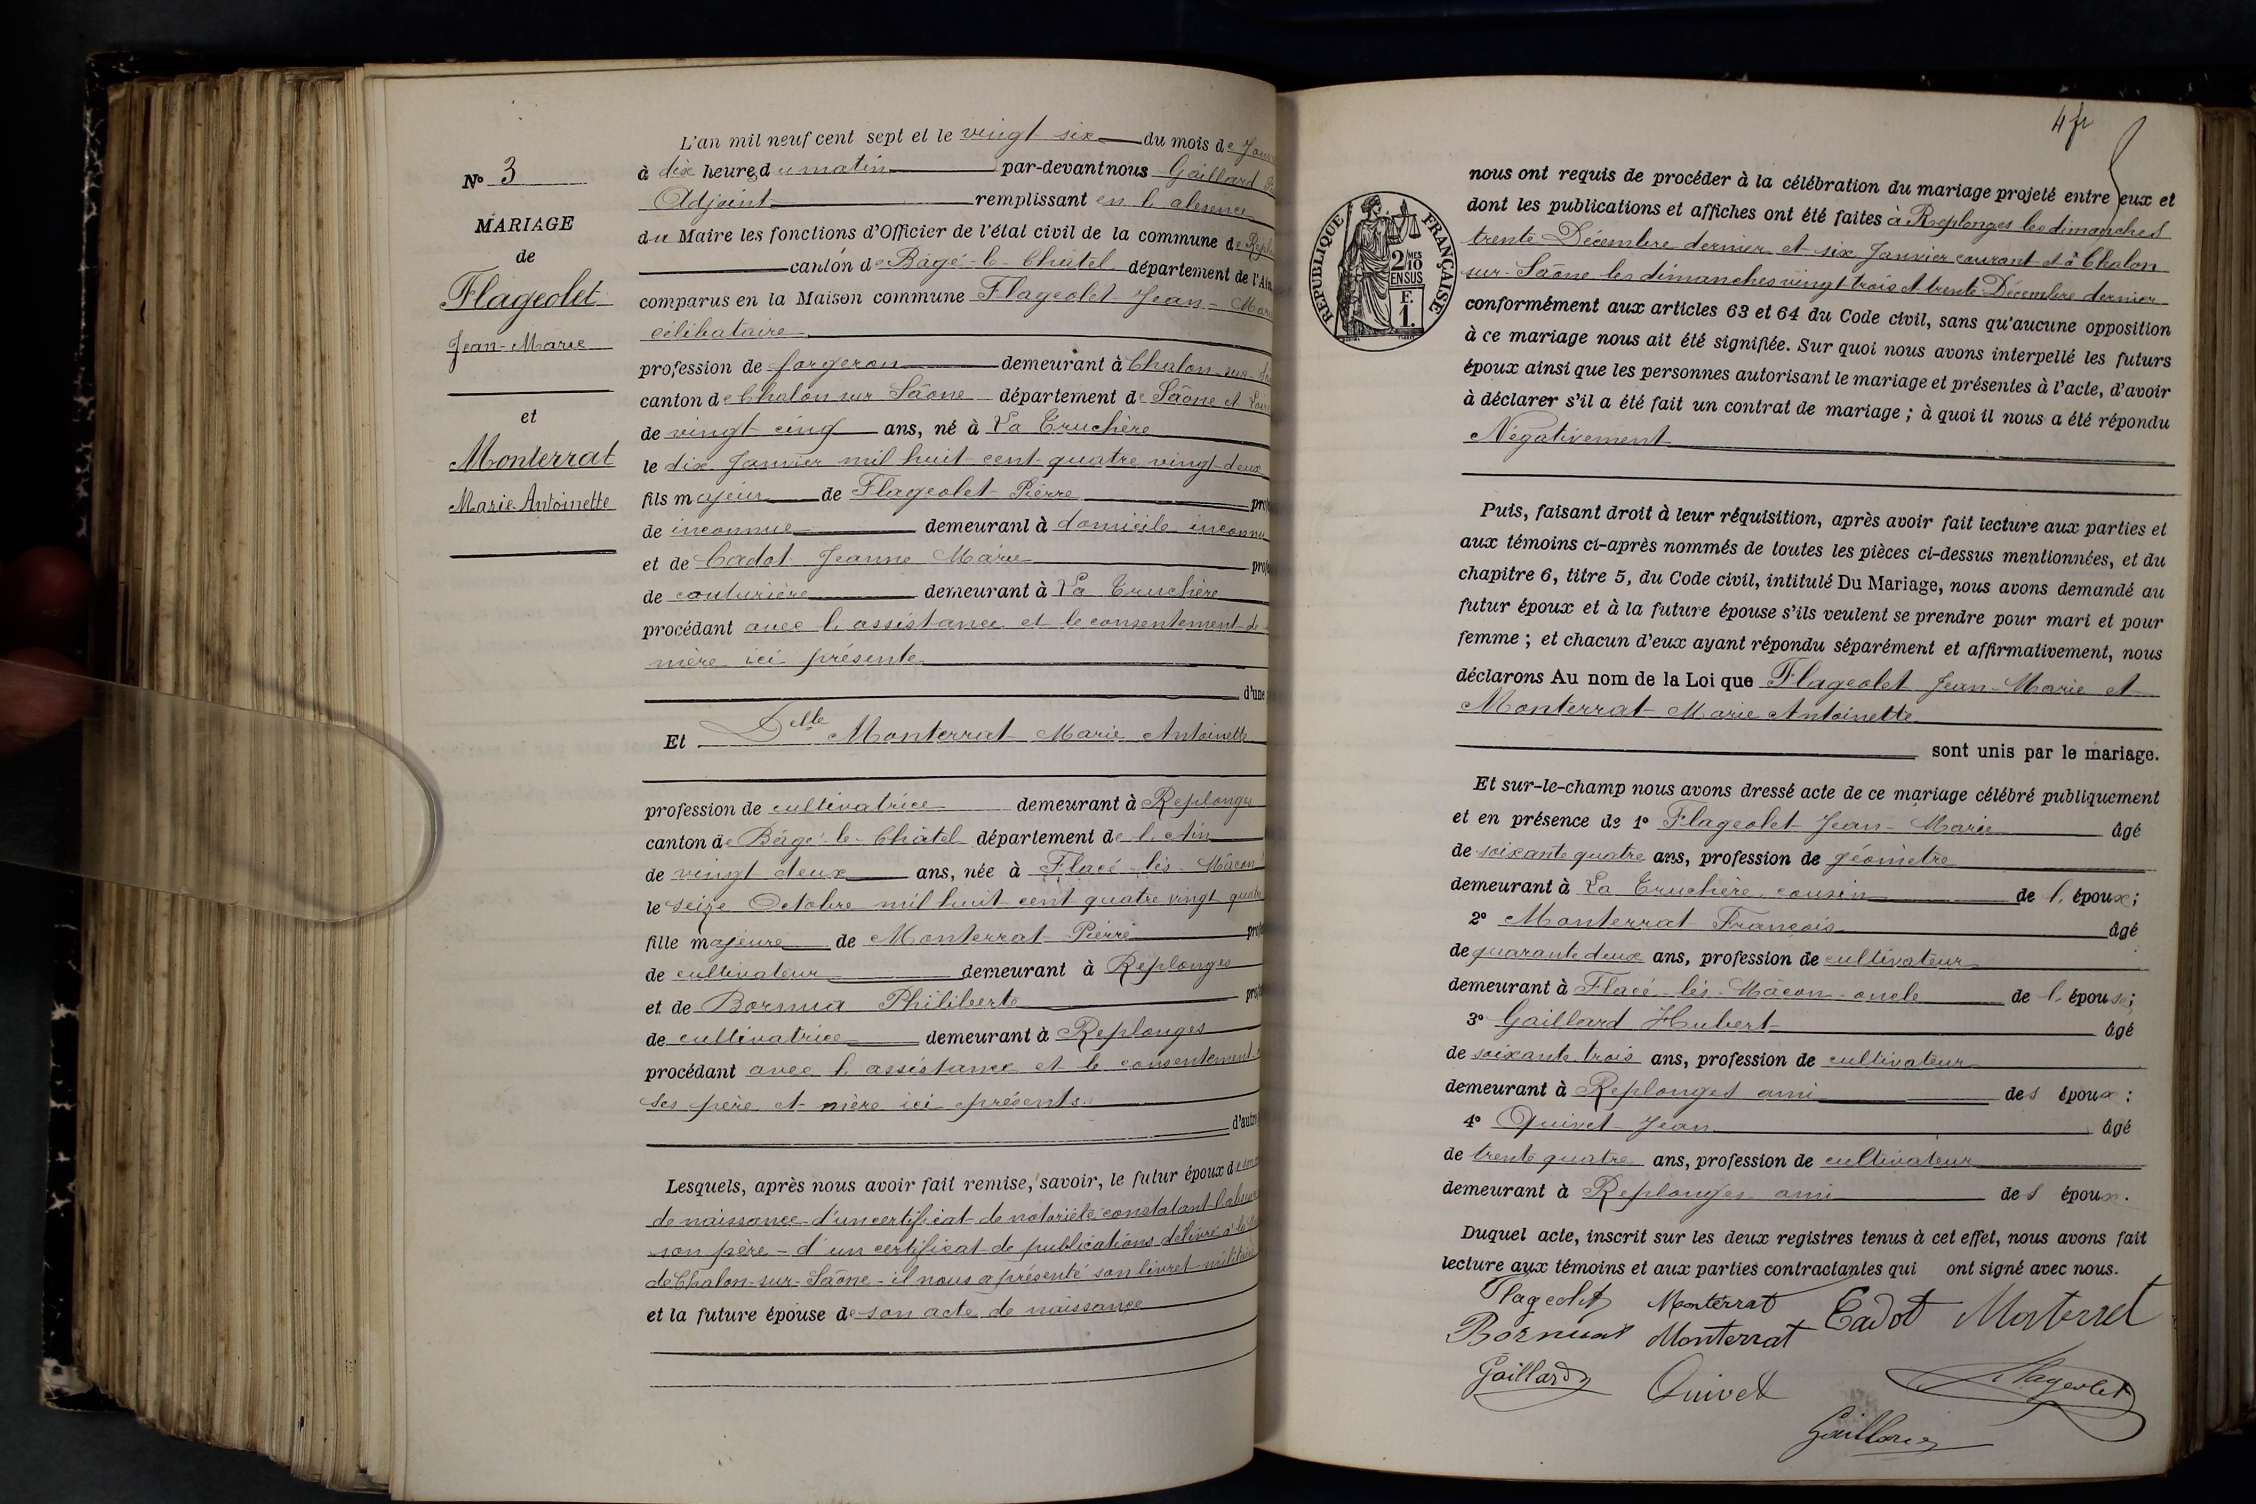 N° 3
MARIAGE
de
Flageolet
Jean-Marie
et
Monterrat
Marie-Antoinette
L'an mil neuf cent sept et le vingt six du mois de
à dix heures du matin par-devant nous Gaillard
Adjoint remplissant en l'absence
du Maire les fonctions d'Officier de l'état civil de la commune de
canton de Bâgé-le-Châtel département de l'Ain
comparus en la Maison commune Flageolet Jean-Marie
célibataire
profession de forgeron demeurant à Chalon-sur-
canton de Chalon sur Saône département de Saône et Loire
de vingt cinq ans, né à La Truchère
le dix Janvier mil huit cent quatre vingt deux
fils majeur de Flageolet Pierre
de inconnue demeurant à domicile inconnu
et de Cadot Jeanne Marie
de couturière demeurant à La Truchère
procédant avec l'assistance et le consentement de
mère ici présente
d'une
Et Delle Monterrat Marie Antoinette
profession de cultivatrice demeurant à Replonges
canton de Bâgé-le-Châtel département de l'Ain
de vingt deux ans, née à Flacé-lès-Mâcon
le seize Octobre mil huit cent quatre vingt quatre
fille majeure de Monterrat Pierre
de cultivateur demeurant à Replonges
et de Bornua Philiberte
de cultivatrice demeurant à Replonges
procédant avec l'assistance et le consentement
ses père et mère ici présents
d'autre
Lesquels, après nous avoir fait remise, savoir, le futur époux de
de naissance - d'un certificat de notoriété constatant
son père - d'un certificat de publications délivré à
de Chalon-sur-Saône - il nous a présenté son livret militaire
et la future épouse de son acte de naissance
4 fr
RÉPUBLIQUE FRANÇAISE
2/10 MES
EN SUS
F.
1.
nous ont requis de procéder à la célébration du mariage projeté entre eux et
dont les publications et affiches ont été faites à Replonges les dimanches
trente Décembre dernier et six Janvier courant et à Chalon
sur-Saône les dimanches vingt trois et trente Décembre dernier
conformément aux articles 63 et 64 du Code civil, sans qu'aucune opposition
à ce mariage nous ait été signifiée. Sur quoi nous avons interpellé les futurs
époux ainsi que les personnes autorisant le mariage et présentes à l'acte, d'avoir
à déclarer s'il a été fait un contrat de mariage ; à quoi il nous a été répondu
Négativement
Puis, faisant droit à leur réquisition, après avoir fait lecture aux parties et
aux témoins ci-après nommés de toutes les pièces ci-dessus mentionnées, et du
chapitre 6, titre 5, du Code civil, intitulé Du Mariage, nous avons demandé au
futur époux et à la future épouse s'ils veulent se prendre pour mari et pour
femme ; et chacun d'eux ayant répondu séparément et affirmativement, nous
déclarons Au nom de la Loi que Flageolet Jean-Marie et
Monterrat Marie Antoinette
sont unis par le mariage.
Et sur-le-champ nous avons dressé acte de ce mariage célébré publiquement
et en présence de 1° Flageolet Jean-Marie âgé
de soixante quatre ans, profession de géomètre
demeurant à La Truchère cousin de l'époux ;
2° Monterrat François âgé
de quarante deux ans, profession de cultivateur
demeurant à Flacé-lès-Mâcon oncle de l'épouse ;
3° Gaillard Hubert âgé
de soixante trois ans, profession de cultivateur
demeurant à Replonges ami des époux ;
4° Quivet Jean âgé
de trente quatre ans, profession de cultivateur
demeurant à Replonges ami des époux.
Duquel acte, inscrit sur les deux registres tenus à cet effet, nous avons fait
lecture aux témoins et aux parties contractantes qui ont signé avec nous.
Flageolet Monterrat Cadot Monterrat
Bornuat Monterrat
Gaillard Quivet Flageolet
Gaillard